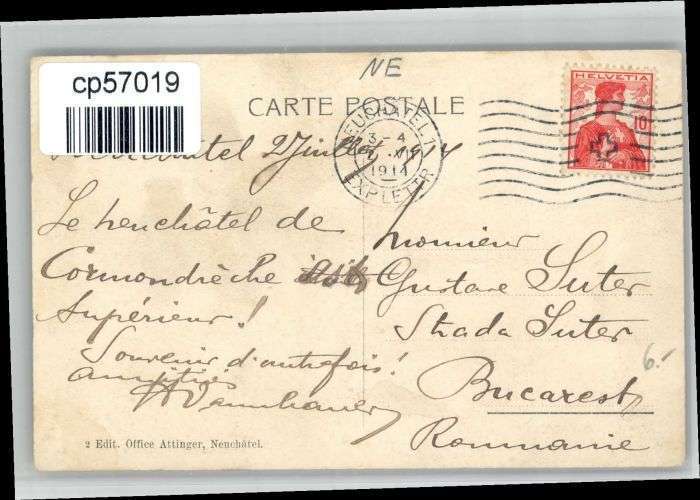 cp57019
NE
CARTE POSTALE
HELVETIA
10
NEUCHATEL 1
3-4
1914
EXP. LETTR.
Neuchâtel 2 juillet 1914
Le neuchâtel de
Cormondrèche
Supérieur!
Souvenir d'autrefois!
amitiés
Monsieur
Gustave Suter
Strada Suter
Bucarest
Roumanie
6.-
2 Edit. Office Attinger, Neuchâtel.